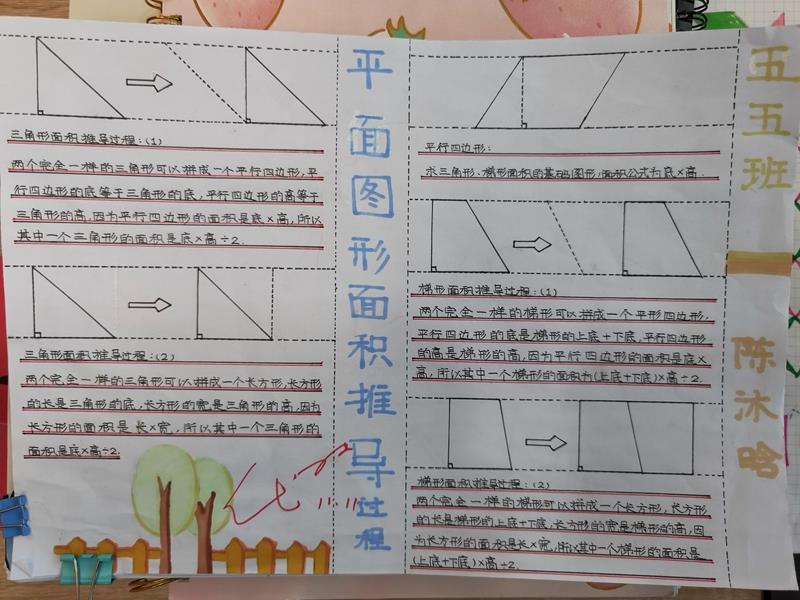 三角形面积推导过程:(1)
两个完全一样的三角形可以拼成一个平行四边形,平
行四边形的底等于三角形的底,平行四边形的高等于
三角形的高,因为平行四边形的面积是底×高,所以
其中一个三角形的面积是底×高÷2.
三角形面积推导过程:(2)
两个完全一样的三角形可以拼成一个长方形,长方形
的长是三角形的底,长方形的宽是三角形的高,因为
长方形的面积是长×宽,所以其中一个三角形的
面积是底×高÷2.
11.11
平面图形面积推导过程
平行四边形:
求三角形、梯形面积的基础图形,面积公式为底×高.
梯形面积推导过程:(1)
两个完全一样的梯形可以拼成一个平形四边形,
平行四边形的底是梯形的上底+下底,平行四边形
的高是梯形的高,因为平行四边形的面积是底×
高,所以其中一个梯形的面积为(上底+下底)×高÷2.
梯形面积推导过程:(2)
两个完全一样的梯形可以拼成一个长方形,长方形
的长是梯形的上底+下底,长方形的宽是梯形的高,因
为长方形的面积是长×宽,所以其中一个梯形的面积是
(上底+下底)×高÷2.
五五班
陈沐晗